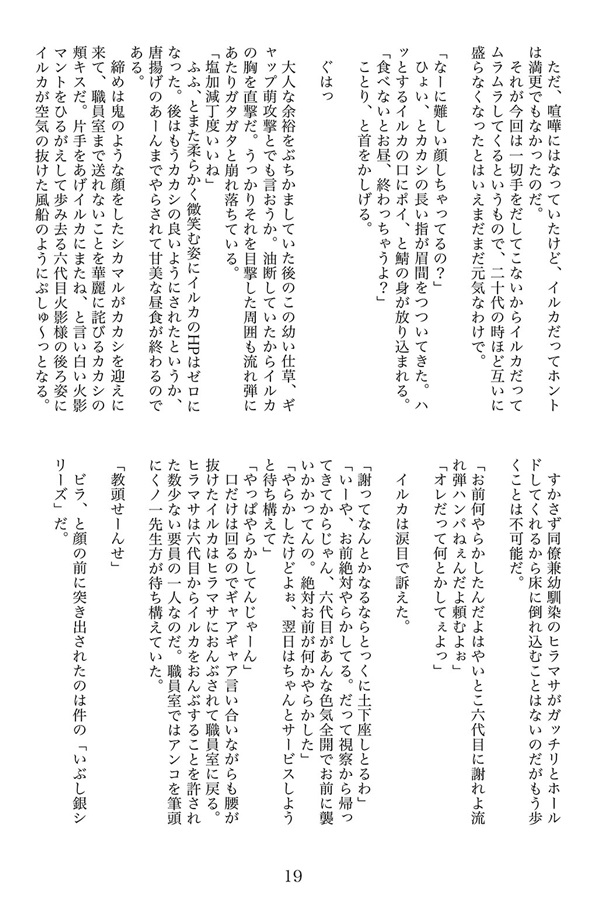 ただ、喧嘩にはなっていたけど、イルカだってホント
は満更でもなかったのだ。
　それが今回は一切手をだしてこないからイルカだって
ムラムラしてくるというもので、二十代の時ほど互いに
盛らなくなったとはいえまだまだ元気なわけで。
「なーに難しい顔しちゃってるの？」
　ひょい、とカカシの長い指が眉間をつついてきた。ハ
ッとするイルカの口にポイ、と鯖の身が放り込まれる。
「食べないとお昼、終わっちゃうよ？」
　ことり、と首をかしげる。
　ぐはっ
　大人な余裕をぶちかましていた後のこの幼い仕草、ギ
ャップ萌攻撃とでも言おうか。油断していたからイルカ
の胸を直撃だ。うっかりそれを目撃した周囲も流れ弾に
あたりガタガタと崩れ落ちている。
「塩加減丁度いいね」
　ふふ、とまた柔らかく微笑む姿にイルカのHPはゼロに
なった。後はもうカカシの良いようにされたというか、
唐揚げのあーんまでやらされて甘美な昼食が終わるので
ある。
　締めは鬼のような顔をしたシカマルがカカシを迎えに
来て、職員室まで送れないことを華麗に詫びるカカシの
頬キスだ。片手をあげイルカにまたね、と言い白い火影
マントをひるがえして歩み去る六代目火影様の後ろ姿に
イルカが空気の抜けた風船のようにぷしゅ〜っとなる。
　すかさず同僚兼幼馴染のヒラマサがガッチリとホール
ドしてくれるから床に倒れ込むことはないのだがもう歩
くことは不可能だ。
「お前何やらかしたんだよはやいとこ六代目に謝れよ流
れ弾ハンパねぇんだよ頼むよぉ」
「オレだって何とかしてぇよっ」
　イルカは涙目で訴えた。
「謝ってなんとかなるならとっくに土下座しとるわ」
「いーや、お前絶対やらかしてる。だって視察から帰っ
てきてからじゃん、六代目があんな色気全開でお前に襲
いかかってんの。絶対お前が何かやらかした」
「やらかしたけどよぉ、翌日はちゃんとサービスしよう
と待ち構えて」
「やっぱやらかしてんじゃーん」
　口だけは回るのでギャアギャア言い合いながらも腰が
抜けたイルカはヒラマサにおんぶされて職員室に戻る。
ヒラマサは六代目からイルカをおんぶすることを許され
た数少ない要員の一人なのだ。職員室ではアンコを筆頭
にくノ一先生方が待ち構えていた。
「教頭せーんせ」
　ビラ、と顔の前に突き出されたのは件の「いぶし銀シ
リーズ」だ。
19